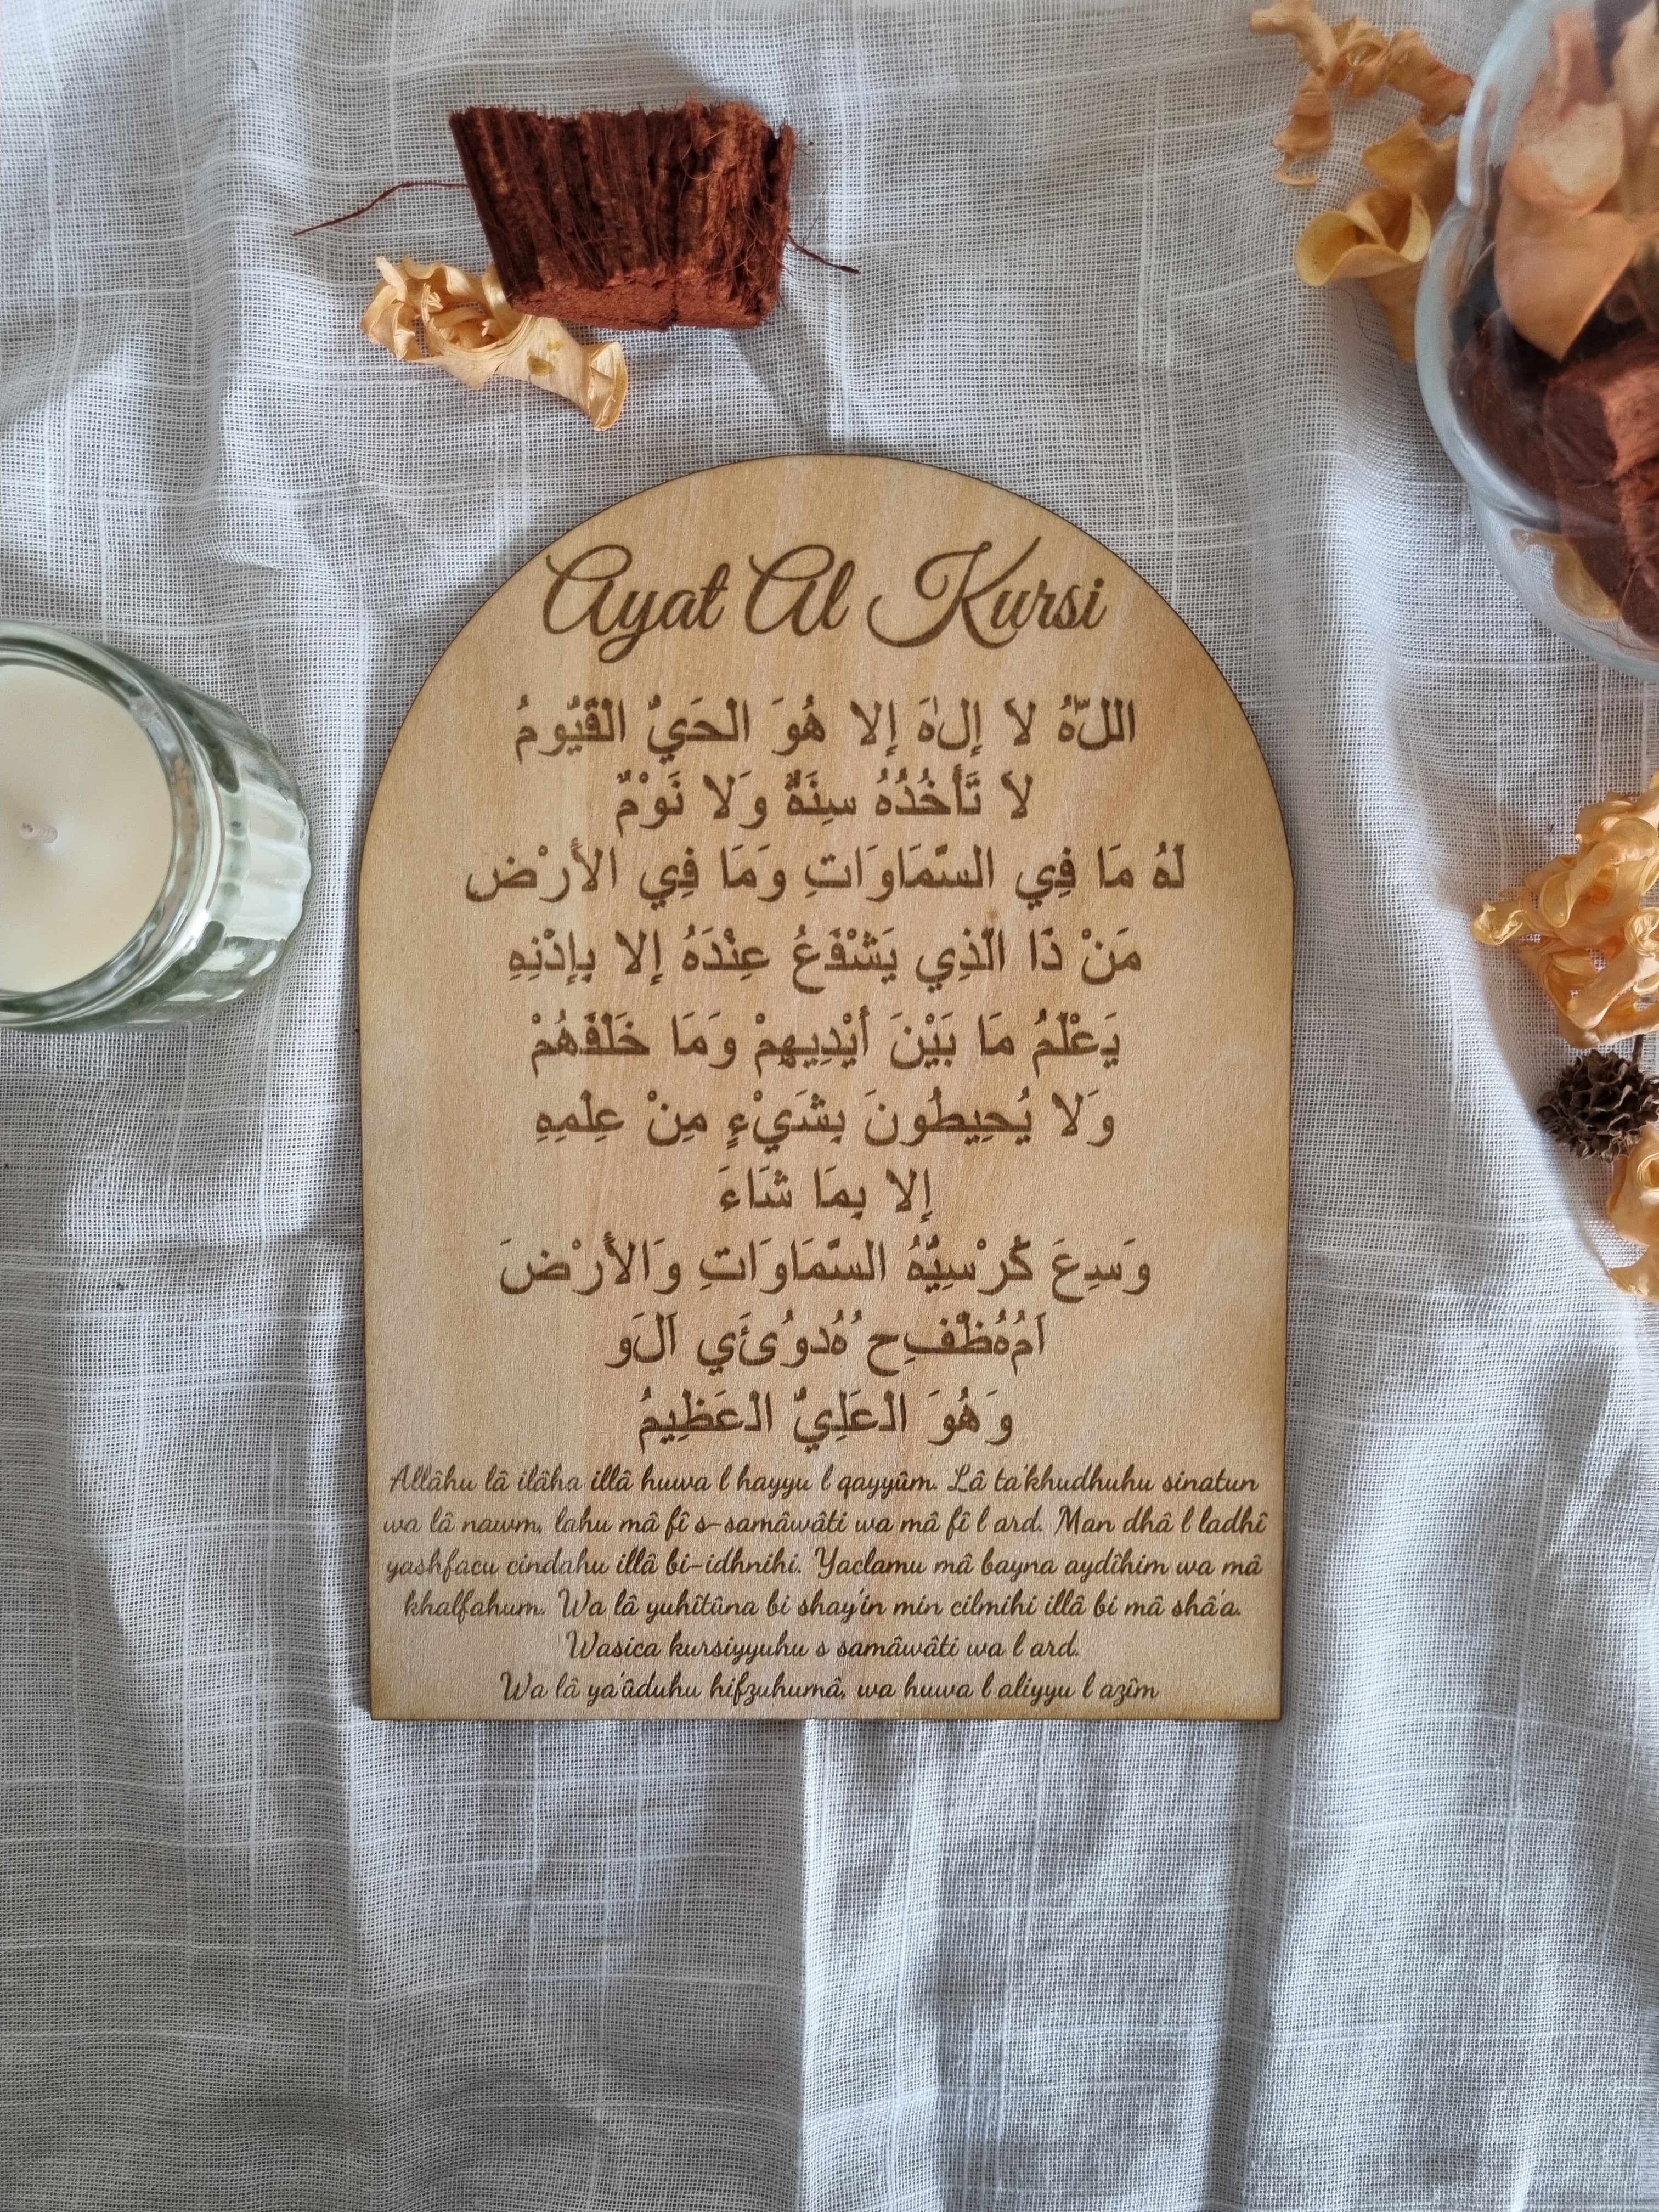 Ayat Al Kursi
اللّهُ لاَ إِلٰهَ إِلا هُوَ الْحَيُّ الْقَيُّومُ
لاَ تَأْخُذُهُ سِنَةٌ وَلا نَوْمٌ
لَهُ مَا فِي السَّمَاوَاتِ وَمَا فِي الأَرْضِ
مَنْ ذَا الَّذِي يَشْفَعُ عِنْدَهُ إِلا بِإِذْنِهِ
يَعْلَمُ مَا بَيْنَ أَيْدِيهِمْ وَمَا خَلْفَهُمْ
وَلا يُحِيطُونَ بِشَيْءٍ مِنْ عِلْمِهِ
إِلا بِمَا شَاءَ
وَسِعَ كُرْسِيُّهُ السَّمَاوَاتِ وَالأَرْضَ
وَهُوَ الْعَلِيُّ الْعَظِيمُ
Allâhu lâ ilâha illâ huwa l hayyu l qayyûm. Lâ ta'khudhuhu sinatun
wa lâ nawm, lahu mâ fî s-samâwâti wa mâ fî l ard. Man dhâ l ladhî
yashfacu cindahu illâ bi-idhnihi. Yaclamu mâ bayna aydîhim wa mâ
khalfahum. Wa lâ yuhîtûna bi shay'in min cilmihi illâ bi mâ shâ'a.
Wasica kursiyyuhu s samâwâti wa l ard.
Wa lâ ya'ûduhu hifzuhumâ, wa huwa l aliyyu l azîm